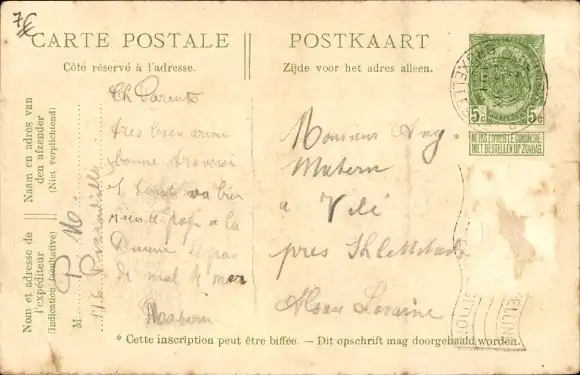 7€
CARTE POSTALE
POSTKAART
Côté réservé à l'adresse.
Zijde voor het adres alleen.
5c 5c
NE PAS LIVRER LE DIMANCHE
NIET BESTELLEN OP ZONDAG
Naam en adres van
den afzender
(Niet verplichtend)
Nom et adresse de
l'expéditeur
(Indication facultative)
M.
Ch Parents
tres bien arrivé
bonne
et tout va bien
a la
et pas
de mal de mer
Monsieur
Matern
a Vilé
pres Schlettstadt
Alsace Loraine
* Cette inscription peut être biffée. — Dit opschrift mag doorgehaald worden.